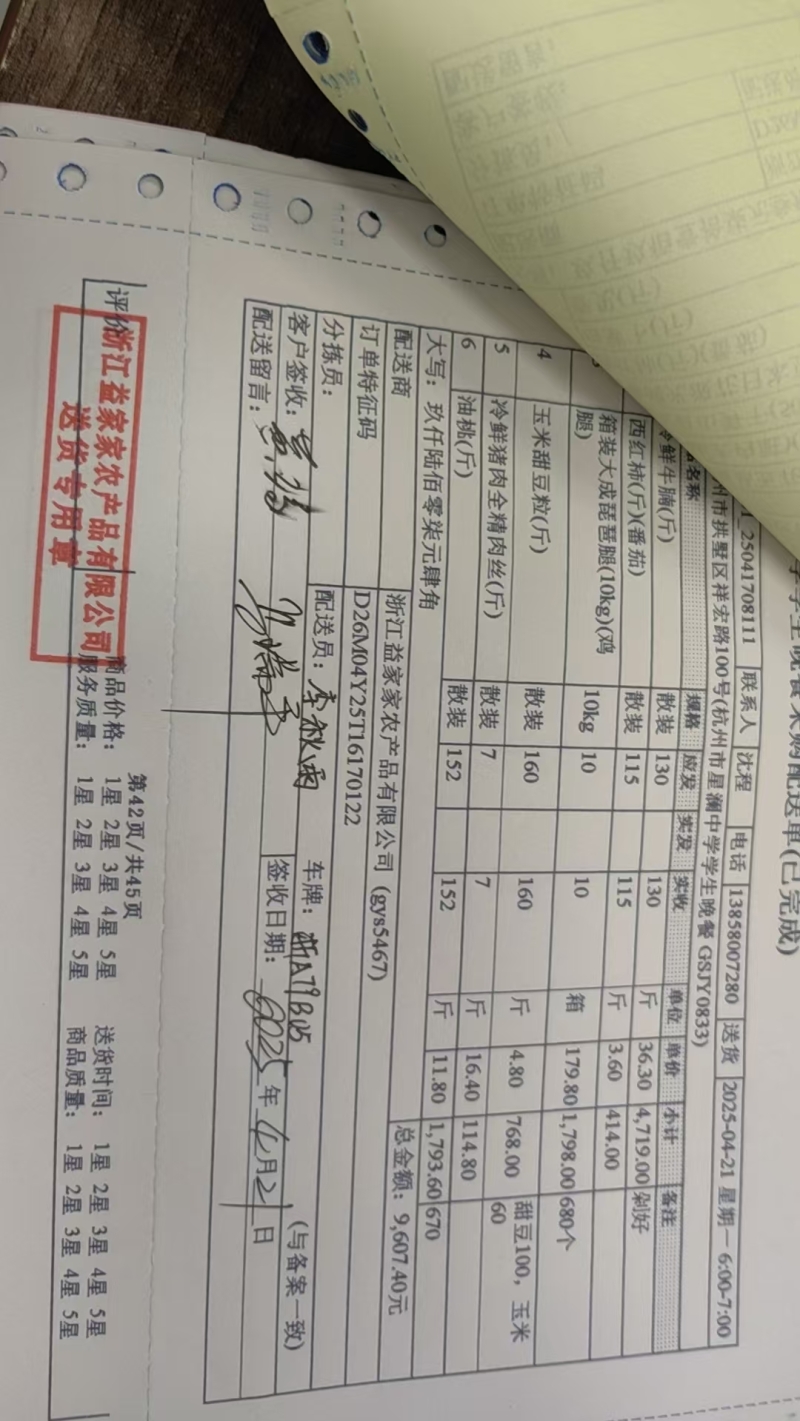 学生晚餐采购配送单(已完成)
25041708111 联系人 沈程 电话 13858007280 送货 2025-04-21 星期一 6:00-7:00
州市拱墅区祥宏路100号(杭州市星澜中学学生晚餐 GSJY0833)
名称 规格 应发 实发 实收 单位 单价 小计 备注
冷鲜牛腩(斤) 散装 130 130 斤 36.30 4,719.00 剁好
西红柿(斤)(番茄) 散装 115 115 斤 3.60 414.00
箱装大成琵琶腿(10kg)(鸡腿) 10kg 10 10 箱 179.80 1,798.00 680个
4 玉米甜豆粒(斤) 散装 160 160 斤 4.80 768.00 甜豆100，玉米60
5 冷鲜猪肉全精肉丝(斤) 散装 7 7 斤 16.40 114.80
6 油桃(斤) 散装 152 152 斤 11.80 1,793.60 670
大写：玖仟陆佰零柒元肆角 总金额：9,607.40元
配送商 浙江益家家农产品有限公司 (gys5467)
订单特征码 D26M04Y25T16170122
分拣员： 配送员：李秋雨 车牌：浙A79B05 (与备案一致)
客户签收： 签收日期：2025年4月21日
配送留言：
第42页/共45页
评价 商品价格： 1星 2星 3星 4星 5星 送货时间： 1星 2星 3星 4星 5星
服务质量： 1星 2星 3星 4星 5星 商品质量： 1星 2星 3星 4星 5星
浙江益家家农产品有限公司
送货专用章